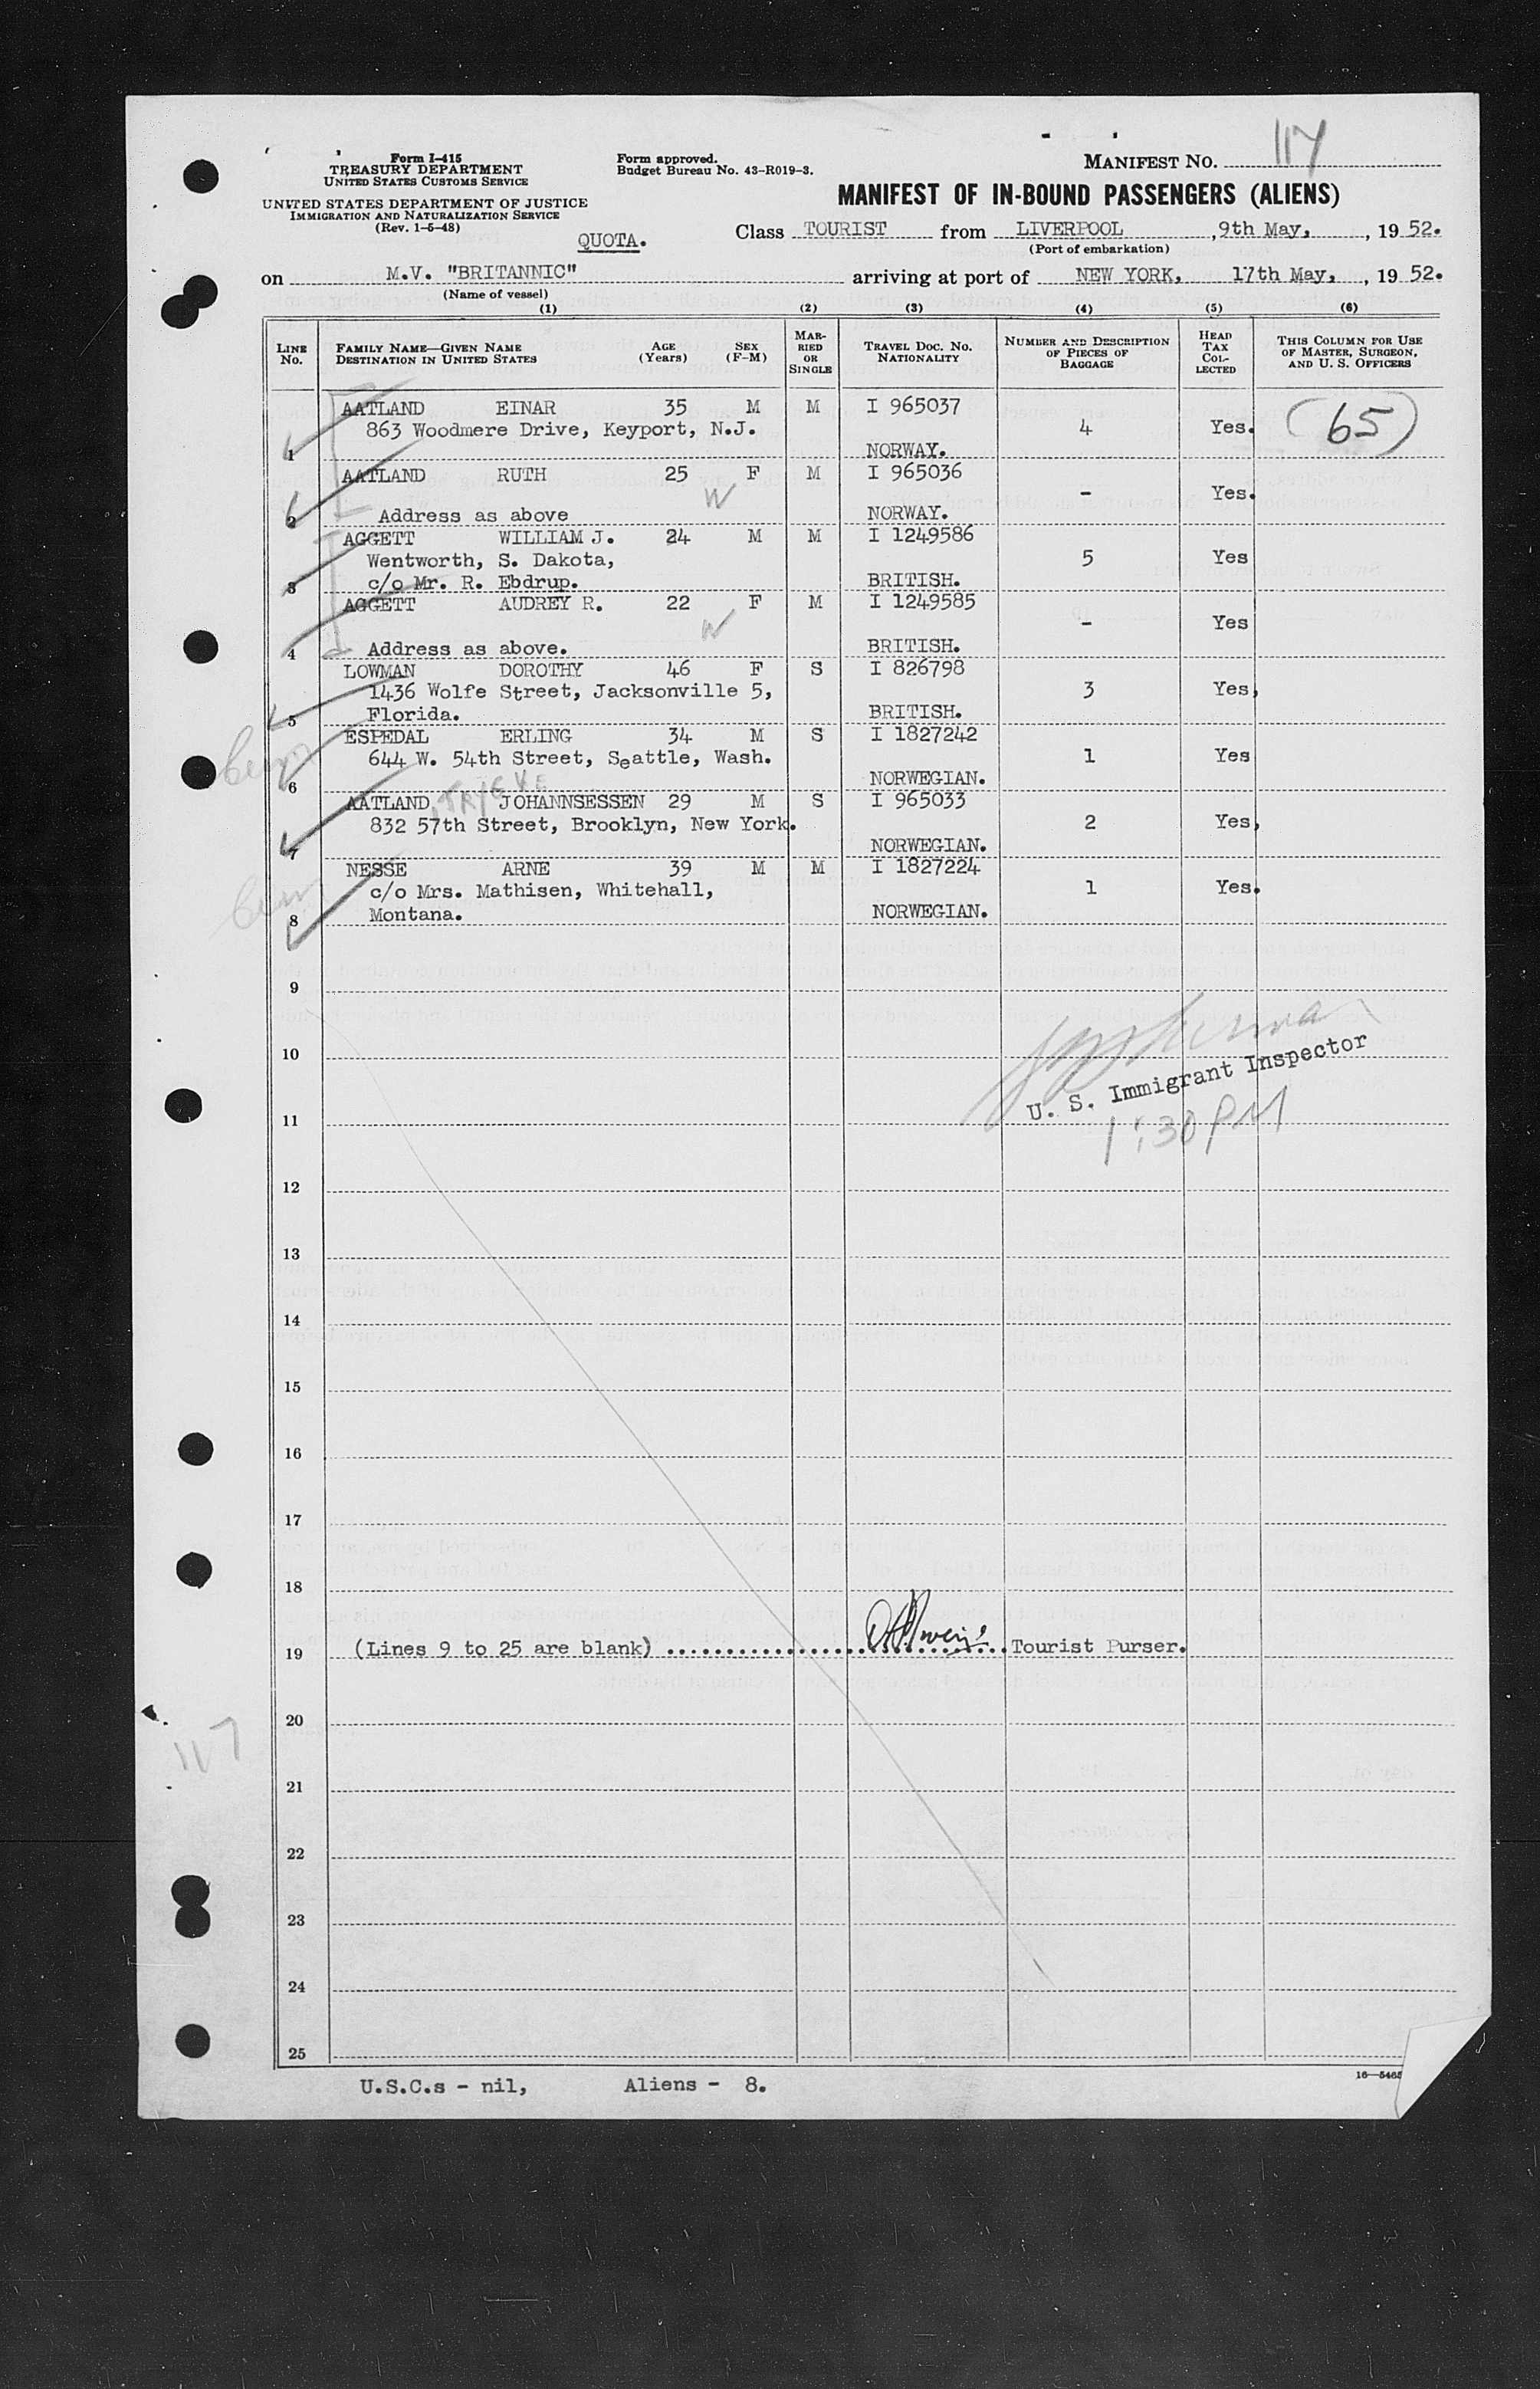 Form I-415
TREASURY DEPARTMENT
UNITED STATES CUSTOMS SERVICE
UNITED STATES DEPARTMENT OF JUSTICE
IMMIGRATION AND NATURALIZATION SERVICE
(Rev. 1-5-48)
Form approved.
Budget Bureau No. 43-R019-3.
MANIFEST NO. 117
MANIFEST OF IN-BOUND PASSENGERS (ALIENS)
QUOTA. Class TOURIST from LIVERPOOL , 9th May, , 19 52.
(Port of embarkation)
on M.V. "BRITANNIC" arriving at port of NEW YORK, 17th May, , 19 52.
(Name of vessel)
(1) (2) (3) (4) (5) (6)
LINE No. FAMILY NAME—GIVEN NAME DESTINATION IN UNITED STATES AGE (Years) SEX (F-M) MARRIED OR SINGLE TRAVEL DOC. NO. NATIONALITY NUMBER AND DESCRIPTION OF PIECES OF BAGGAGE HEAD TAX COLLECTED THIS COLUMN FOR USE OF MASTER, SURGEON, AND U. S. OFFICERS
AATLAND EINAR 35 M M I 965037
863 Woodmere Drive, Keyport, N.J. 4 Yes. (65)
1 NORWAY.
AATLAND RUTH 25 F M I 965036
W - Yes.
2 Address as above NORWAY.
AGGETT WILLIAM J. 24 M M I 1249586
Wentworth, S. Dakota, 5 Yes
3 c/o Mr. R. Ebdrup. BRITISH.
AGGETT AUDREY R. 22 F M I 1249585
W - Yes
4 Address as above. BRITISH.
LOWMAN DOROTHY 46 F S I 826798
1436 Wolfe Street, Jacksonville 5, 3 Yes,
5 Florida. BRITISH.
ESPEDAL ERLING 34 M S I 1827242
644 W. 54th Street, Seattle, Wash. 1 Yes
6 NORWEGIAN.
AATLAND, TRYGVE JOHANNSESSEN 29 M S I 965033
832 57th Street, Brooklyn, New York. 2 Yes,
7 NORWEGIAN.
NESSE ARNE 39 M M I 1827224
c/o Mrs. Mathisen, Whitehall, 1 Yes.
8 Montana. NORWEGIAN.
9
10
U. S. Immigrant Inspector
11
1:30 PM
12
13
14
15
16
17
18
19 (Lines 9 to 25 are blank) .......................... Tourist Purser.
20
117
21
22
23
24
25
U.S.C.s - nil, Aliens - 8.